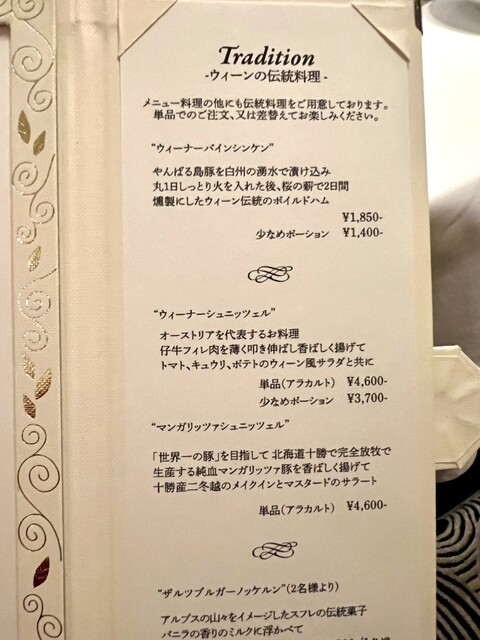 Tradition
-ウィーンの伝統料理-
メニュー料理の他にも伝統料理をご用意しております。
単品でのご注文、又は差替えてお楽しみください。
“ウィーナーバインシンケン”
やんばる島豚を白州の湧水で漬け込み
丸1日しっとり火を入れた後、桜の薪で2日間
燻製にしたウィーン伝統のボイルドハム
¥1,850-
少なめポーション ¥1,400-
“ウィーナーシュニッツェル”
オーストリアを代表するお料理
仔牛フィレ肉を薄く叩き伸ばし香ばしく揚げて
トマト、キュウリ、ポテトのウィーン風サラダと共に
単品(アラカルト) ¥4,600-
少なめポーション ¥3,700-
“マンガリッツァシュニッツェル”
「世界一の豚」を目指して 北海道十勝で完全放牧で
生産する純血マンガリッツァ豚を香ばしく揚げて
十勝産二冬越のメイクインとマスタードのサラート
単品(アラカルト) ¥4,600-
“ザルツブルガーノッケルン”(2名様より)
アルプスの山々をイメージしたスフレの伝統菓子
バニラの香りのミルクに浮かべて